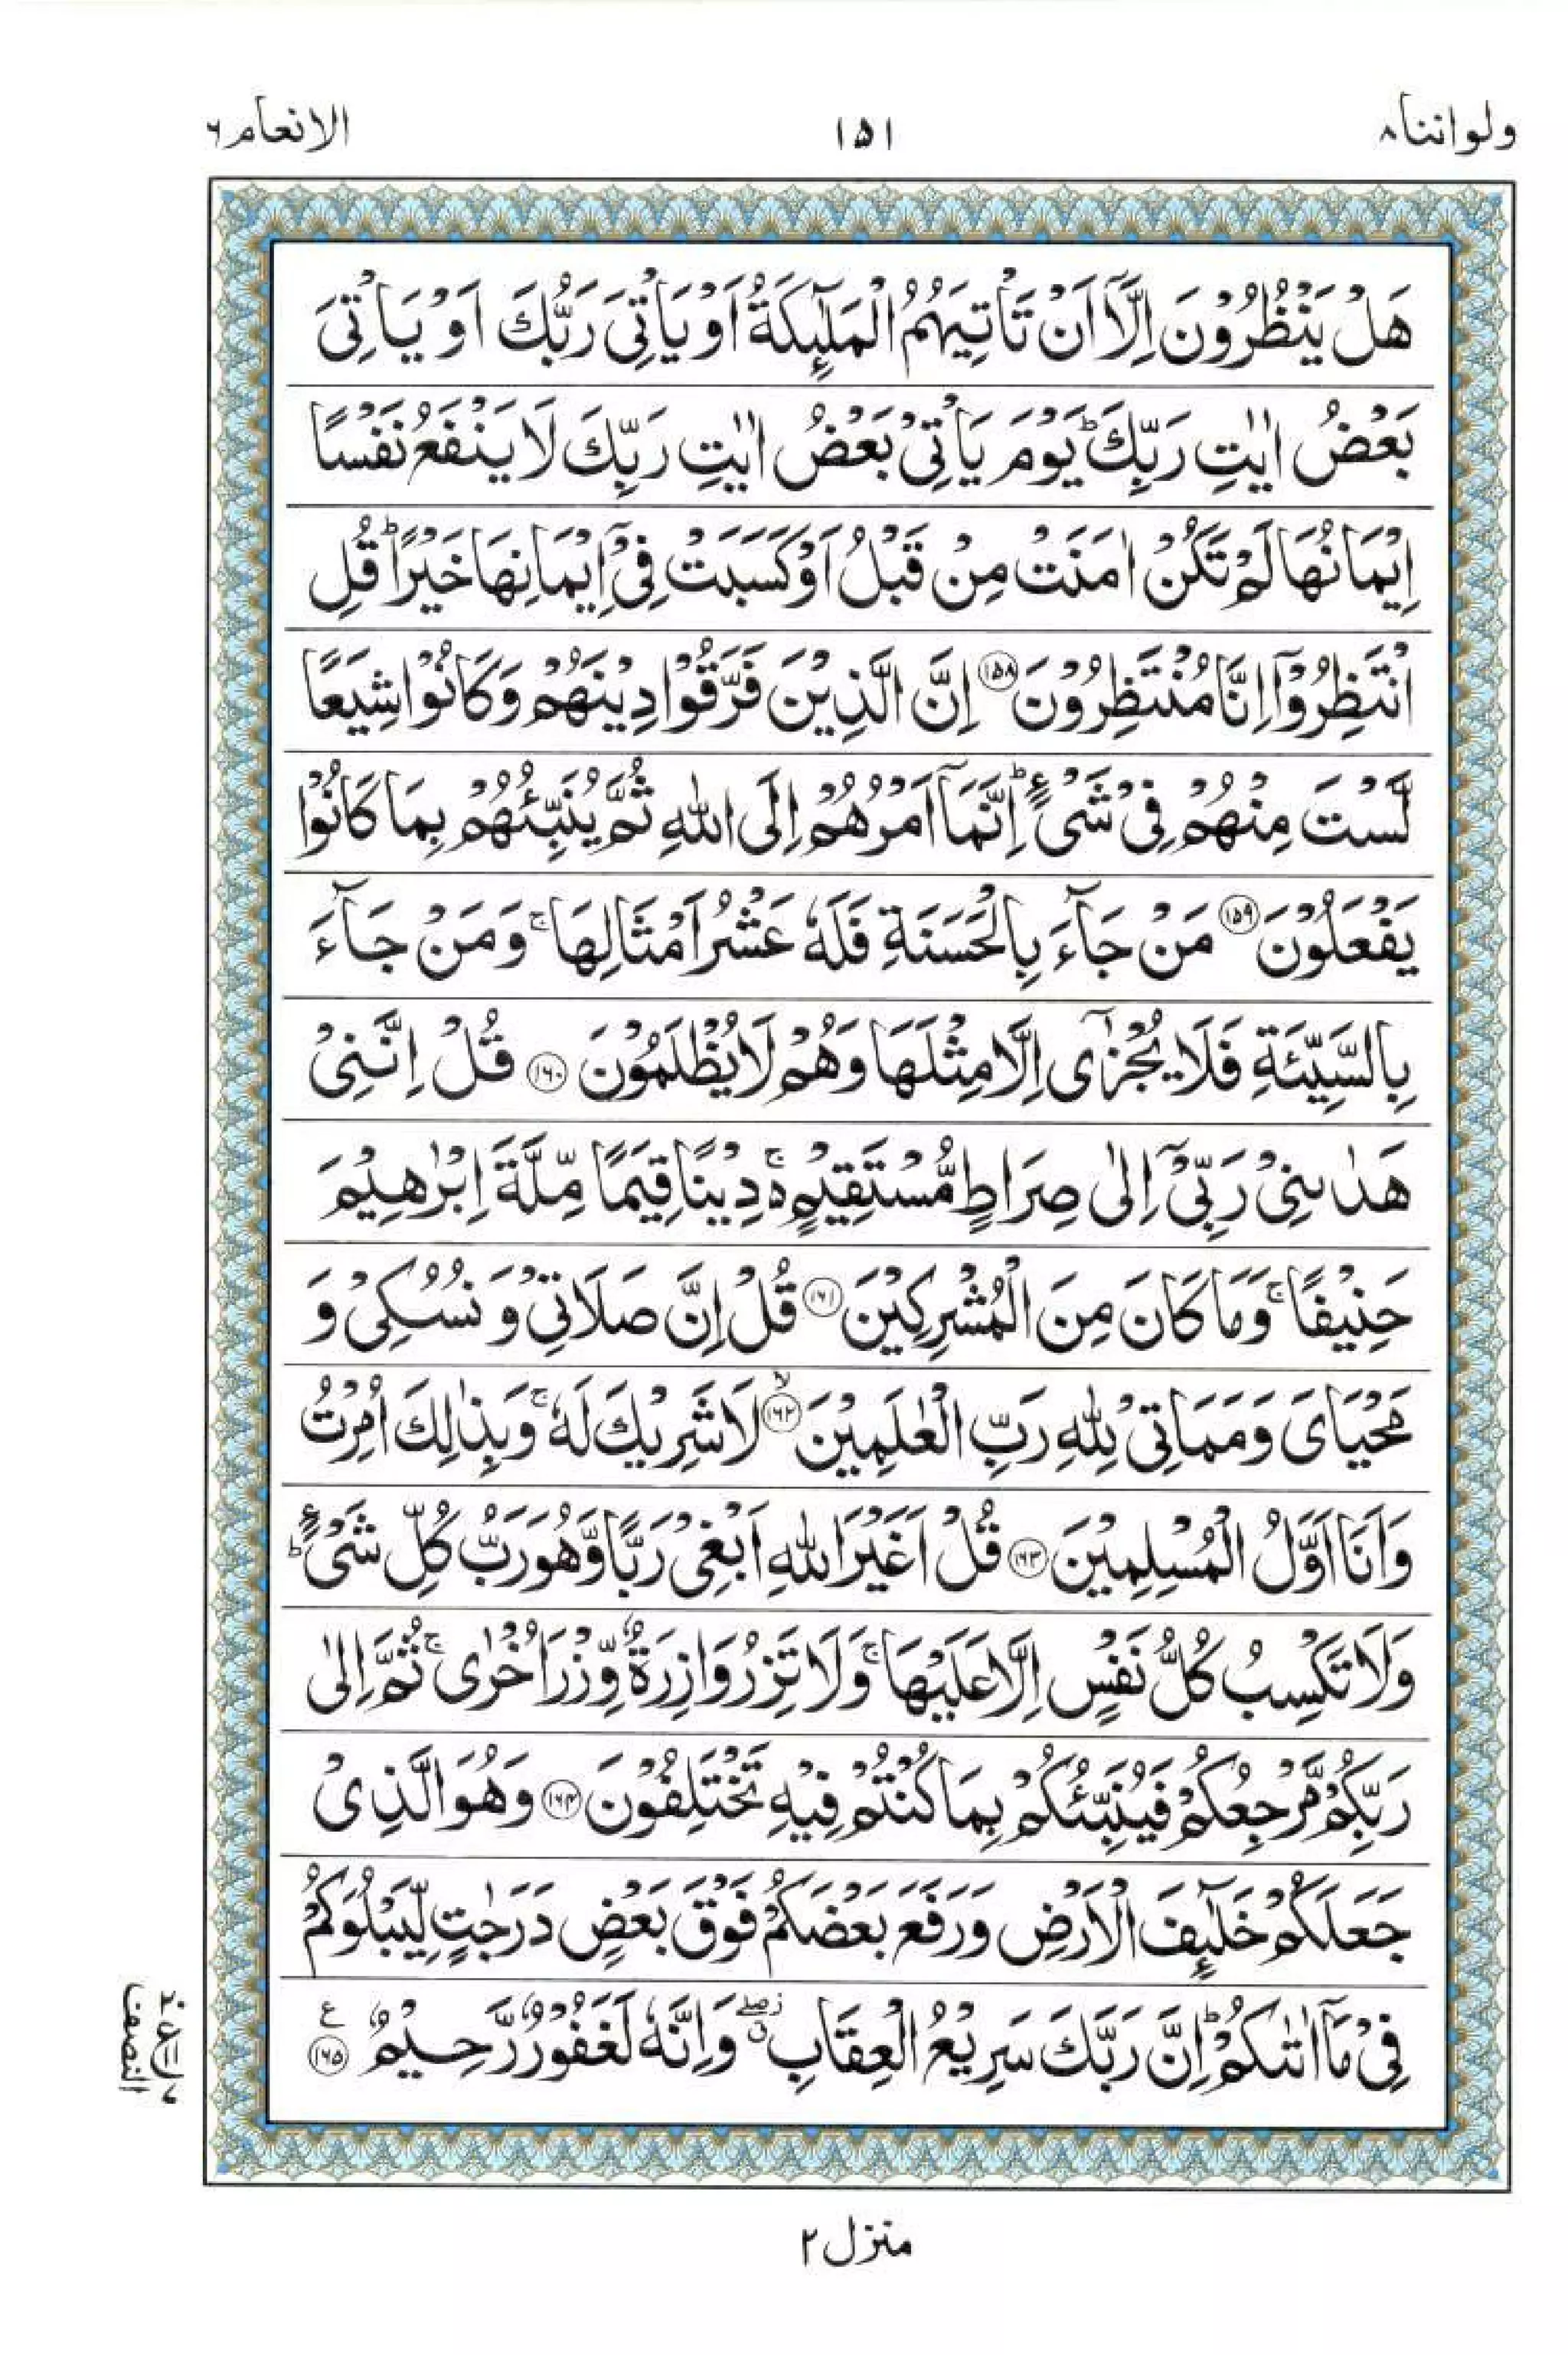 ولواننا ٨
١٥١
الانعام ٦
هَلْ يَنْظُرُوْنَ اِلَّاۤ اَنْ تَاْتِيَهُمُ الْمَلٰٓئِكَةُ اَوْ يَاْتِيَ رَبُّكَ اَوْ يَاْتِيَ
بَعْضُ اٰيٰتِ رَبِّكَ ؕ يَوْمَ يَاْتِيْ بَعْضُ اٰيٰتِ رَبِّكَ لَا يَنْفَعُ نَفْسًا
اِيْمَانُهَا لَمْ تَكُنْ اٰمَنَتْ مِنْ قَبْلُ اَوْ كَسَبَتْ فِيْۤ اِيْمَانِهَا خَيْرًا ؕ قُلِ
انْتَظِرُوْۤا اِنَّا مُنْتَظِرُوْنَ ١٥٨ اِنَّ الَّذِيْنَ فَرَّقُوْا دِيْنَهُمْ وَكَانُوْا شِيَعًا
لَّسْتَ مِنْهُمْ فِيْ شَيْءٍ ؕ اِنَّمَاۤ اَمْرُهُمْ اِلَى اللّٰهِ ثُمَّ يُنَبِّئُهُمْ بِمَا كَانُوْا
يَفْعَلُوْنَ ١٥٩ مَنْ جَآءَ بِالْحَسَنَةِ فَلَهٗ عَشْرُ اَمْثَالِهَا ۚ وَمَنْ جَآءَ
بِالسَّيِّئَةِ فَلَا يُجْزٰۤى اِلَّا مِثْلَهَا وَهُمْ لَا يُظْلَمُوْنَ ١٦٠ قُلْ اِنَّنِيْ
هَدٰىنِيْ رَبِّيْۤ اِلٰى صِرَاطٍ مُّسْتَقِيْمٍ ۚ۬ دِيْنًا قِيَمًا مِّلَّةَ اِبْرٰهِيْمَ
حَنِيْفًا ۚ وَمَا كَانَ مِنَ الْمُشْرِكِيْنَ ١٦١ قُلْ اِنَّ صَلَاتِيْ وَ نُسُكِيْ وَ
مَحْيَايَ وَمَمَاتِيْ لِلّٰهِ رَبِّ الْعٰلَمِيْنَ ۙ ١٦٢ لَا شَرِيْكَ لَهٗ ۚ وَبِذٰلِكَ اُمِرْتُ
وَاَنَا اَوَّلُ الْمُسْلِمِيْنَ ١٦٣ قُلْ اَغَيْرَ اللّٰهِ اَبْغِيْ رَبًّا وَّهُوَ رَبُّ كُلِّ شَيْءٍ ؕ
وَلَا تَكْسِبُ كُلُّ نَفْسٍ اِلَّا عَلَيْهَا ۚ وَلَا تَزِرُ وَازِرَةٌ وِّزْرَ اُخْرٰى ۚ ثُمَّ اِلٰى
رَبِّكُمْ مَّرْجِعُكُمْ فَيُنَبِّئُكُمْ بِمَا كُنْتُمْ فِيْهِ تَخْتَلِفُوْنَ ١٦٤ وَهُوَ الَّذِيْ
جَعَلَكُمْ خَلٰٓئِفَ الْاَرْضِ وَرَفَعَ بَعْضَكُمْ فَوْقَ بَعْضٍ دَرَجٰتٍ لِّيَبْلُوَكُمْ
فِيْ مَاۤ اٰتٰىكُمْ ؕ اِنَّ رَبَّكَ سَرِيْعُ الْعِقَابِ ۖ ز ق وَاِنَّهٗ لَغَفُوْرٌ رَّحِيْمٌ ١٦٥ ع
النصف
منزل ٢